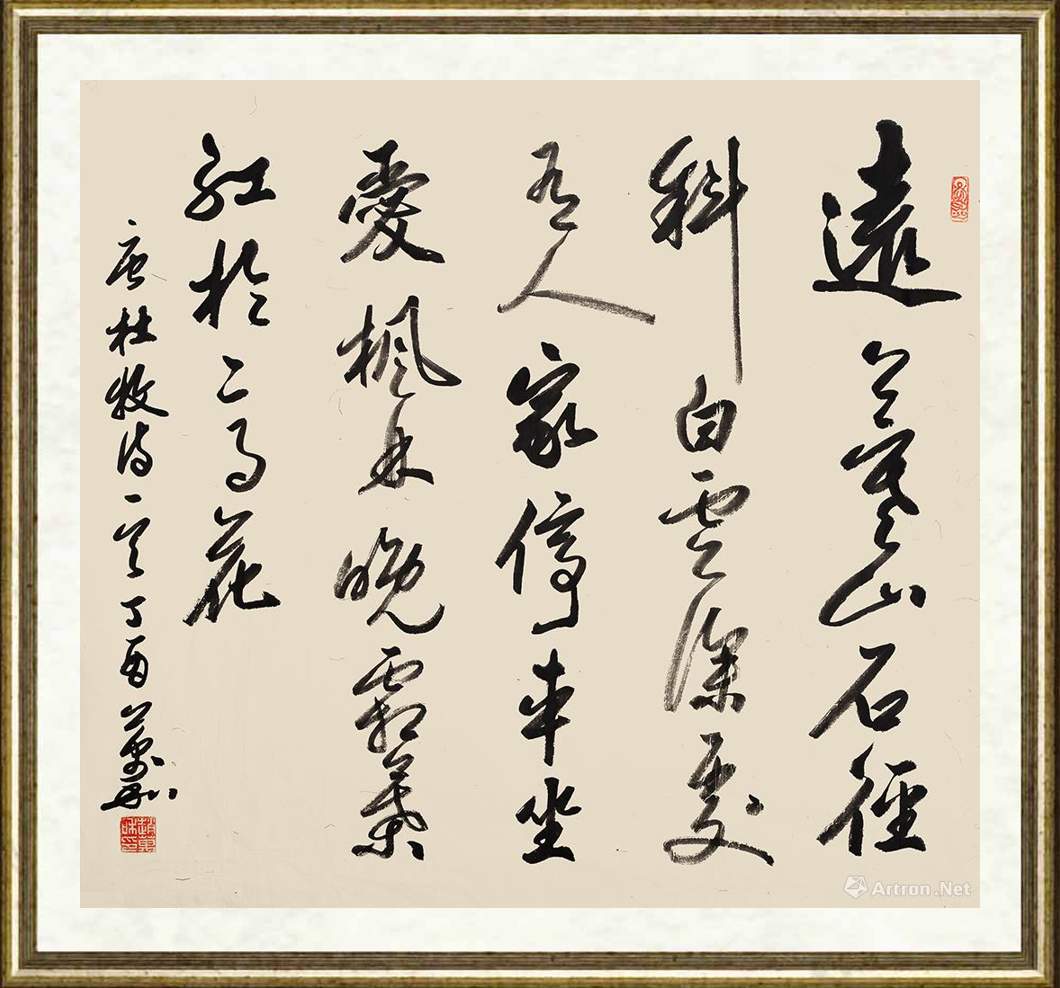 遠上寒山石徑
斜白雲深處
有人家停車坐
愛楓林晚霜葉
紅於二月花
唐杜牧詩一首丁酉
Artron.Net